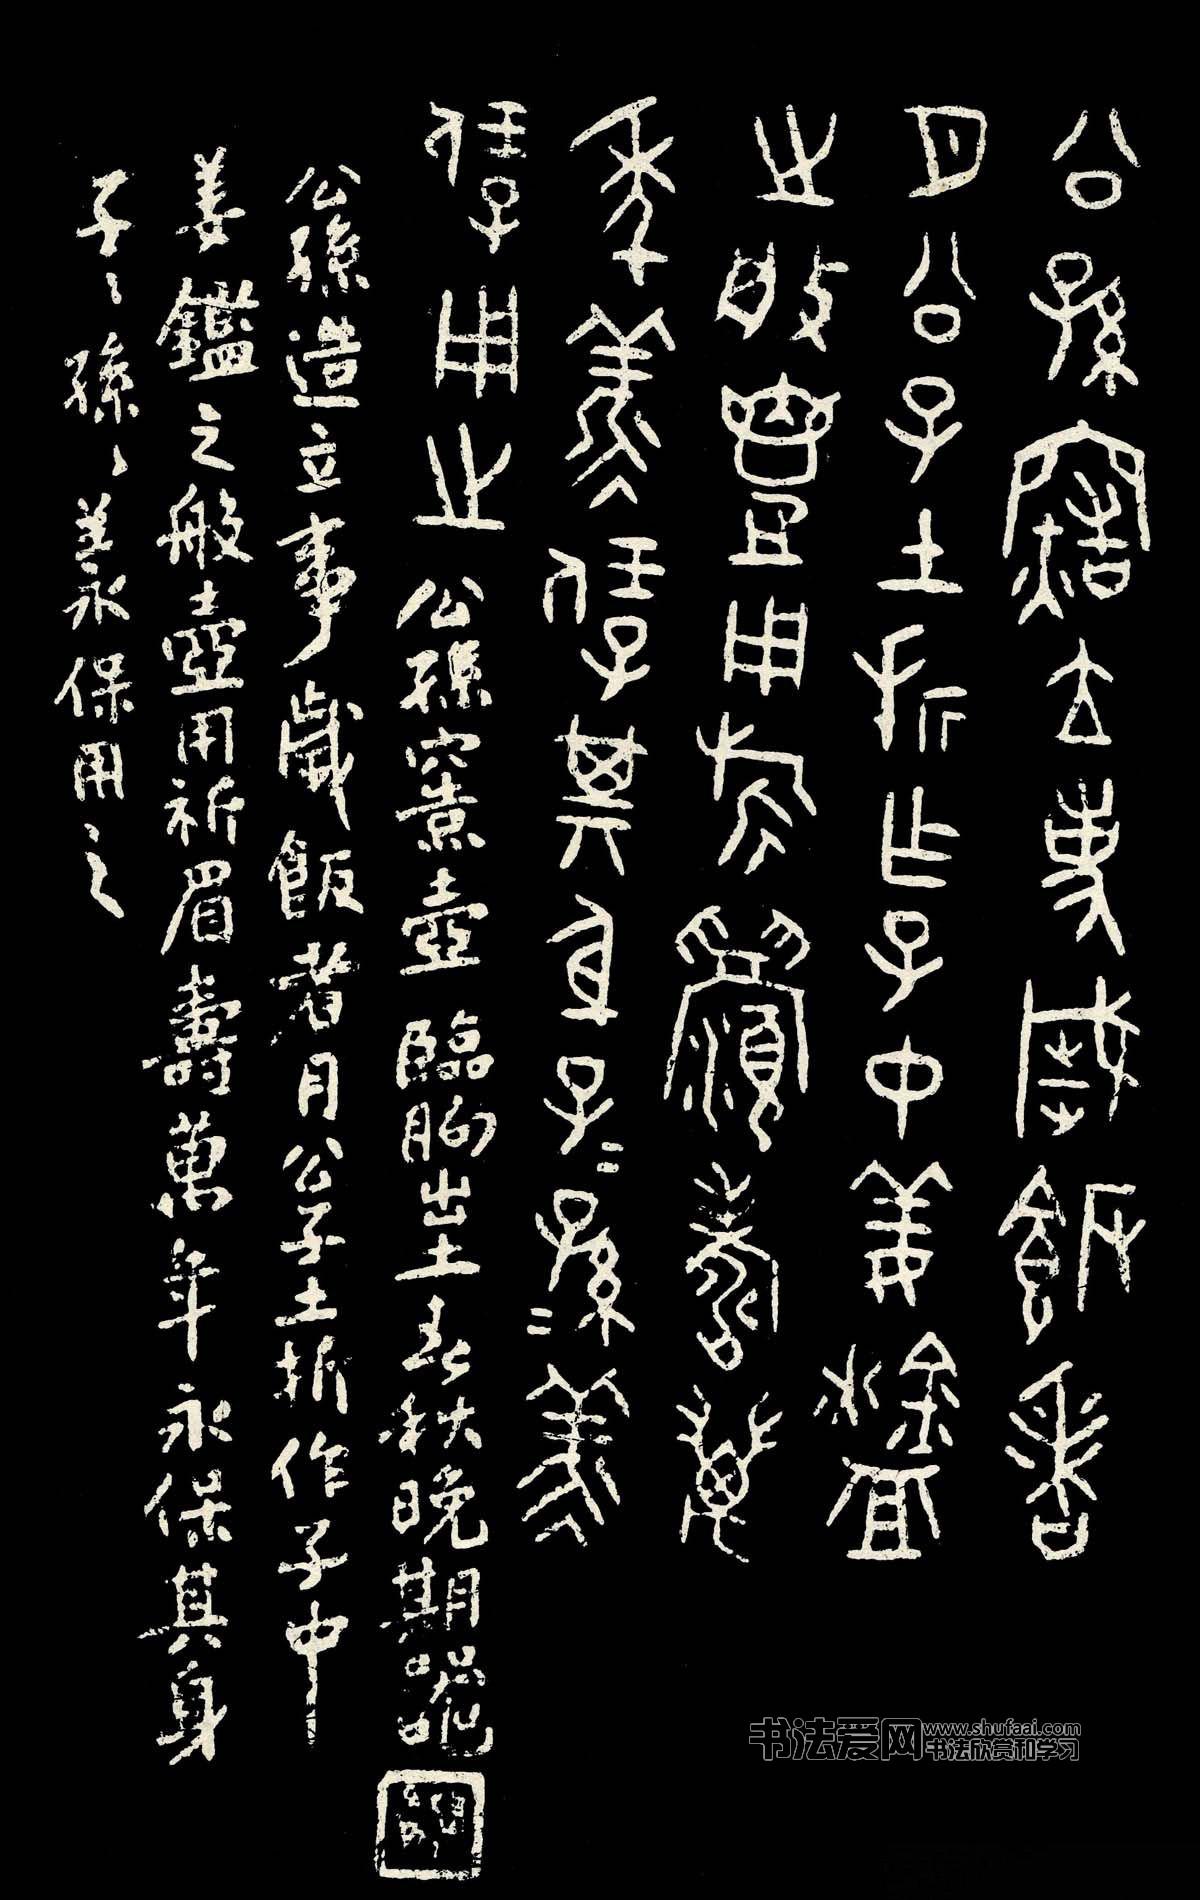 公孫竈立事歲飯者
月公子土折乍子中姜
之般壺用旂眉壽萬
年羕保其身子=孫=羕
保用之 公孫壺 臨朐出土春秋晚期器
公孫造立事歲飯者月公子土折作子中
姜鑑之般壺用祈眉壽萬年永保其身
子〻孫〻羕保用之
书法爱网
www.shufaai.com
书法欣赏和学习